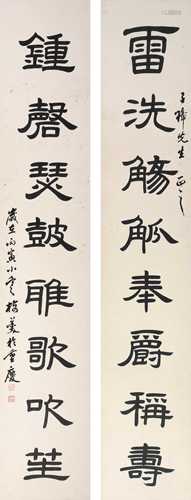 雷洗觴觚奉爵稱壽
子樟先生 正之
鍾磬瑟鼓雎歌吹笙
歲在丙寅小雪 於重慶